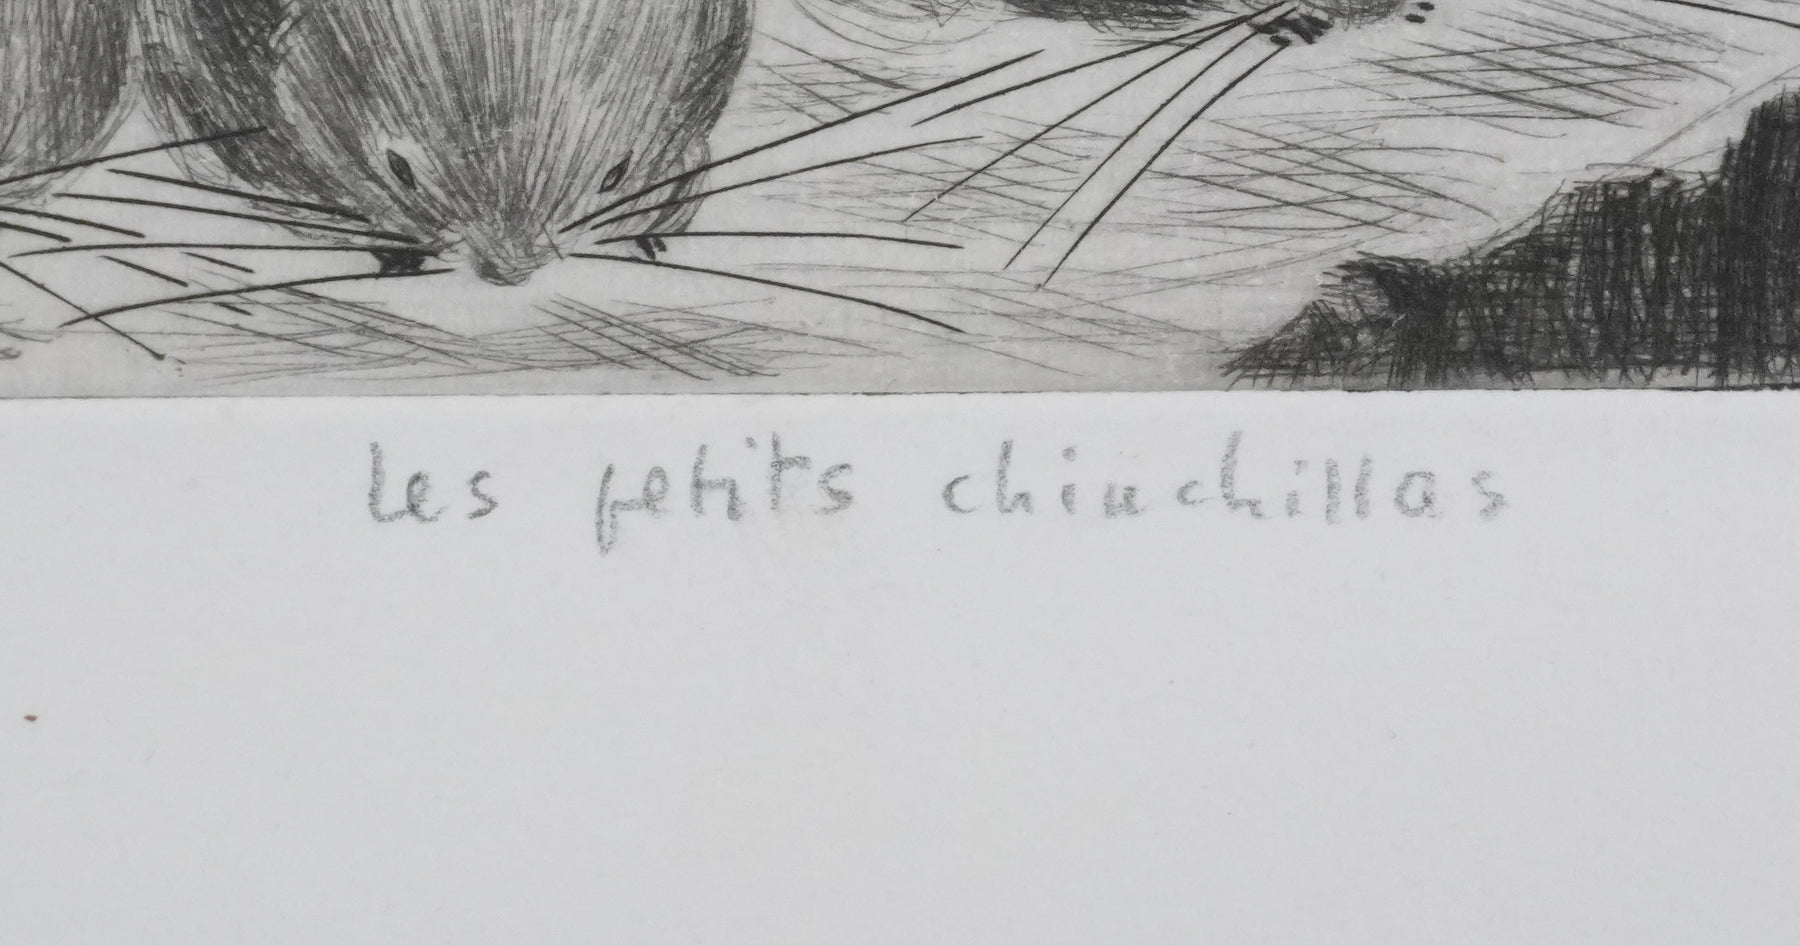 les petits chinchillas